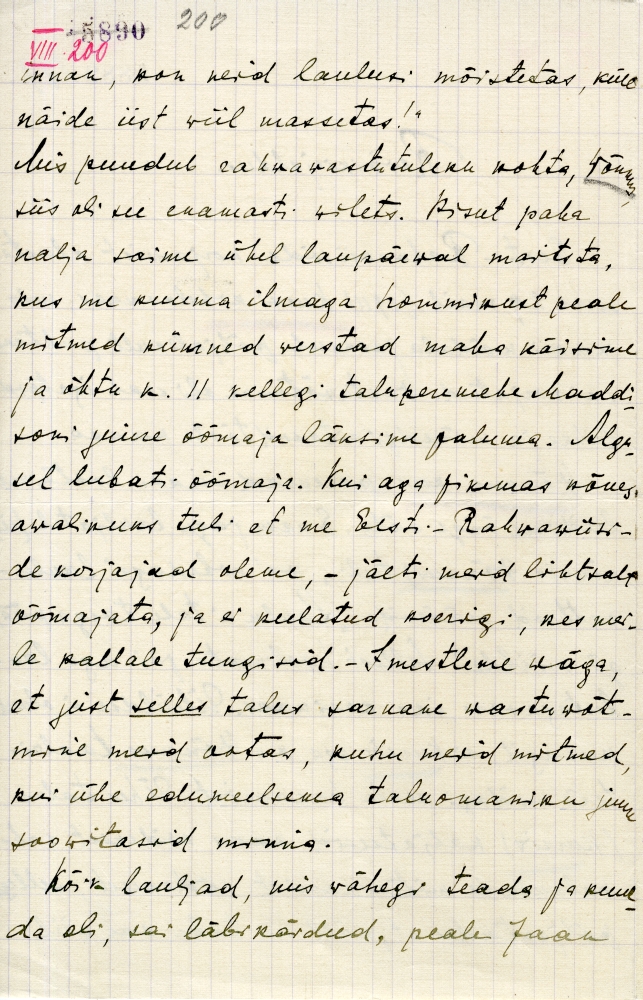 5890 200
VIII 200
innan, kon neid laulusi mõistetas, küll
näide iist wiil massetas!"
Mis puudub rahwawastutuleku kohta, Tõnus,
siis oli see enamasti wilets. Pisut paha
nalja saime ühel laupäewal maitsta,
kus me kuuma ilmaga hommikust peale
mitmed kümned werstad maha käisime
ja õhtu k. 11 kellegi taluperemehe Maddi-
soni juure öömaja läksime paluma. Algu-
sel lubati öömaja. Kui aga pikemas kõnes,
awalikuks tuli et me Eesti - Rahwawiisi-
de korjajad oleme, - jäeti meid lihtsalt
öömajata, ja ei keelatud koerigi, kes mei-
le kallale tungisid. - Imestleme wäga,
et just selles talus sarnane wastuwõt-
mine meid ootas, kuhu meid mitmed,
kui ühe edumeelsema taluomaniku juure
soowitasid minna.
Kõik lauljad, mis wähegi teada ja kuul-
da oli, sai läbi käidud, peale Jaan